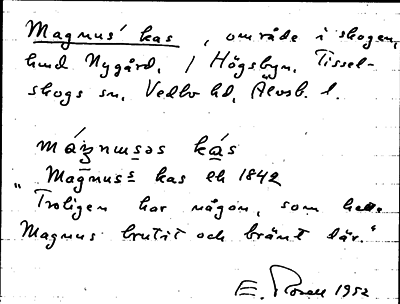 Magnus' kas, område i skogen,
hmd Nygård, / Högsbyn, Tissel-
skogs sn, Vedbo hd, Älvsb. l.
máʒnɯsəs kás
Magnuss kas ek 1842
"Troligen har någon, som hette
Magnus brutit och bränt där."
E. Rosell 1952